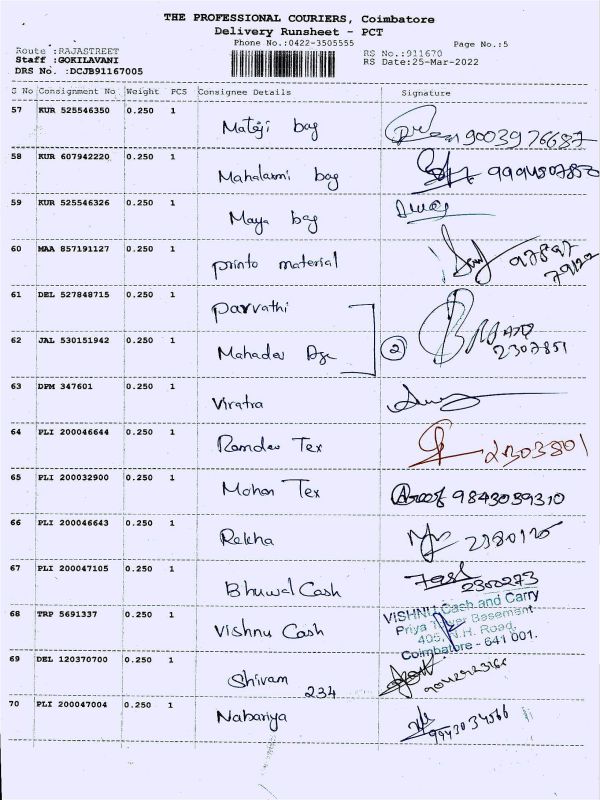 THE PROFESSIONAL COURIERS, Coimbatore
Delivery Runsheet - PCT
Phone No.:0422-3505555 Page No.:5
Route :RAJASTREET RS No.:911670
Staff :GOKILAVANI RS Date:25-Mar-2022
DRS No. :DCJB91167005
S No Consignment No Weight PCS Consignee Details Signature
57 KUR 525546350 0.250 1 Mataji bag 9003976687
58 KUR 607942220 0.250 1 Mahalaxmi bag
59 KUR 525546326 0.250 1 Maya bag
60 MAA 857191127 0.250 1 printo material
61 DEL 527848715 0.250 1 parvathi
62 JAL 530151942 0.250 1 Mahadev 2 2307851
63 DPM 347601 0.250 1 Viratra
64 PLI 200046644 0.250 1 Ramdev Tex 2303801
65 PLI 200032900 0.250 1 Mohan Tex 9843039310
66 PLI 200046643 0.250 1 Rekha
67 PLI 200047105 0.250 1 Bhuwal Cash 2300273
68 TRP 5691337 0.250 1 Vishnu Cash
VISHNU Cash and Carry
Priya Tower Basement
405, N.H. Road,
Coimbatore - 641 001.
69 DEL 120370700 0.250 1 Shivam 234
70 PLI 200047004 0.250 1 Nabariya